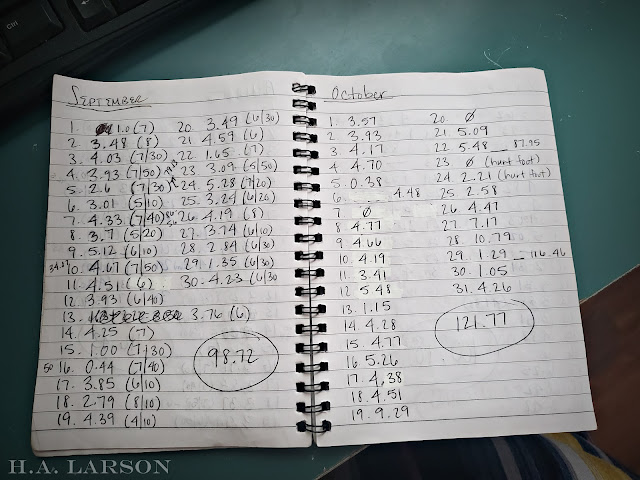 Ctrl
SEPTEMBER
1. 1.0 (7)
2 3.48 (8)
3. 4.03 (7/30)
4. 3.93 (7/50)
5. 2.6 (7/30)
6. 3.01 (5/10)
7. 4.33 (7/40)
8. 3.7 (5/20)
9. 5.12 (6/10)
10. 4.67 (7/50)
11. 4.51 (6)
12. 3.93 (6/40)
13. 3.76 (6)
14. 4.25 (7)
15. 1.00 (7/30)
50 16. 0.44 (7/40)
17. 3.85 (6/10)
18. 2.79 (8/10)
19. 4.39 (4/10)
20 3.49 (6/30)
21 4.59 (6)
22 1.65 (7)
23 3.09 (5/50)
24 5.28 (7/20)
25. 3.24 (6/20)
26 4.19 (8)
27. 3.74 (6/10)
28. 2.84 (6/30)
29. 1.35 (6/30)
30. 4.23 (6/30
98.72
October
1. 3.57
2 3.93
3 4.17
4 4.70
5. 0.38
6 4.48
7 Ø
8 4.77
9 4.66
10 4.19
11 3.41
12 5.48
13. 1.15
14 4.28
15. 4.77
16 5.26
17 4.38
18 4.51
19. 9.29
20. Ø
21 5.09
22 5.48 __ 87.95
23 Ø (hurt foot)
24 2.21 (hurt foot)
25 2.58
26 4.47
27 7.17
28. 10.79
29 1.29 __ 116.46
30 1.05
31. 4.26
121.77
H.A. LARSON